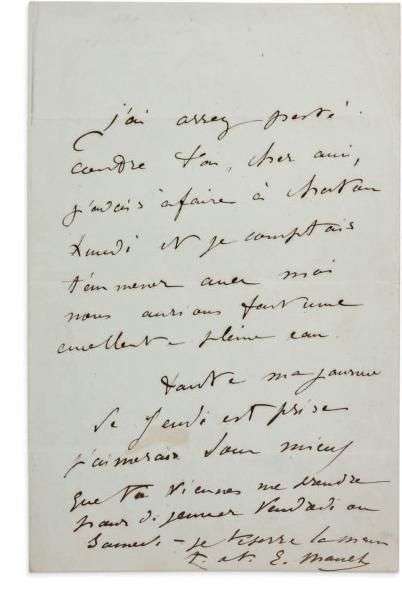 j'ai assez pesté
contre toi, cher ami,
j'avais à faire à Chatou
Lundi et je comptais
t'emmener avec moi
nous aurions fait une
excellente pleine eau.
toute ma journée
de Jeudi est prise
j'aimerais donc mieux
que tu viennes me prendre
pour déjeuner Vendredi ou
Samedi - je te serre la main
t. à t. E. Manet